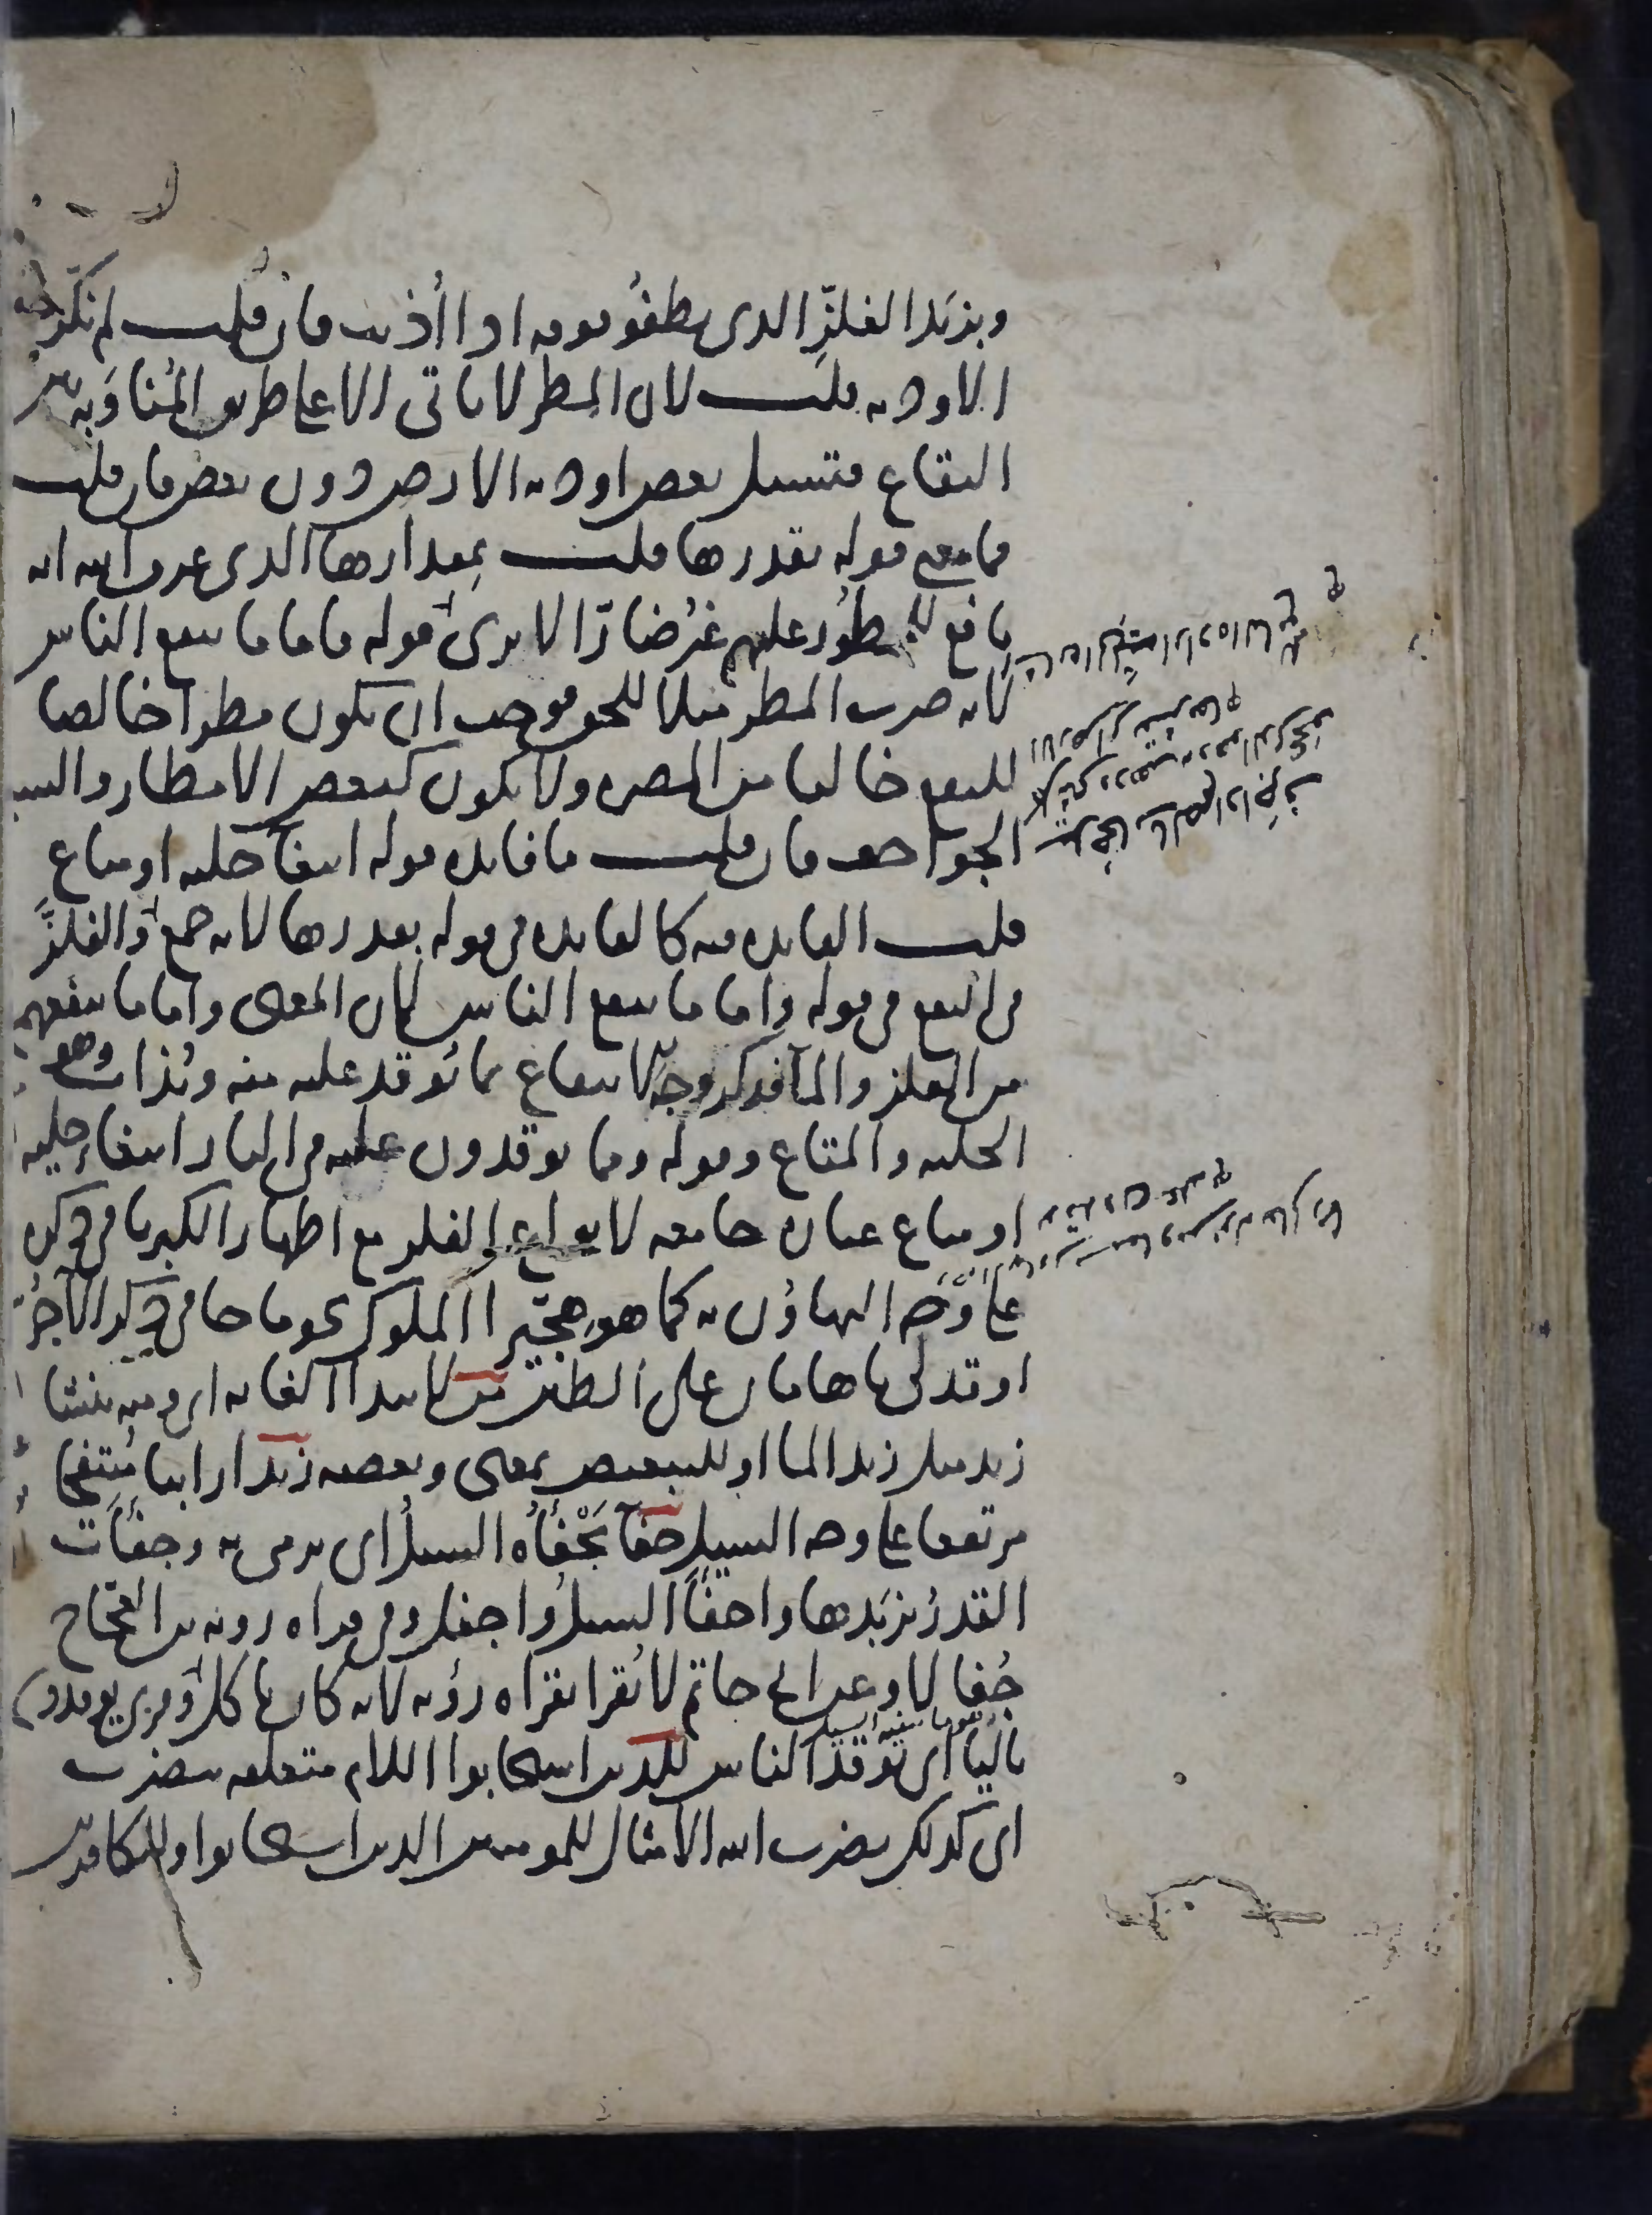 وبزبد الفلز الذى يطفو فوقه اذا أذيب فان قلت لم نكرت
الاودية قلت لان المطر لا ياتى الا على طريق المناوبة بين
البقاع فتسيل بعض اودية الارض دون بعض فان قلت
فما معنى قوله بقدرها قلت بمقدارها الذى عرف الله انه
نافع للممطور عليهم غير ضار الا ترى الى قوله واما ما ينفع الناس
لانه ضرب المطر مثلا للحق فوجب ان يكون مطرا خالصا
للنفع خاليا من المضرة ولا يكون كبعض الامطار والسيول
الجواحف فان قلت ما فائدة قوله ابتغا حلية او متاع
قلت الفائدة فيه كالفائدة فى قوله بقدرها لانه جمع الما والفلز
فى النفع فى قوله واما ما ينفع الناس لان المعنى واما ما ينفعهم
من الفلز والما فذكر وجه الانتفاع مما يوقد عليه منه ويذاب وهو
الحلية والمتاع وقوله ومما يوقدون عليه فى النار ابتغاء حلية
او متاع عبارة جامعة لانواع الفلز مع اظهار الكبريا فى ذكره
على وجه التهاون به كما هو هجيرا الملوك نحو ما جا فى ذكر الآجر
اوقد لى يا هامان على الطين من لابتدا الغاية اى ومنه ينشا
زبد مثل زبد الما او للتبعيض بمعنى وبعضه زبدا رابيا منتفخا
مرتفعا على وجه السيل جفآ يجفأه السيل اى يرمى به وجفأت
القدر بزبدها واجفأ السيل واجفل وفى قراة روبة بن العجاج
جفالا وعن ابى حاتم لا يقرا بقراة روبة لانه كان ياكل الفار وقرى يوقدون
باليا اى يوقد الناس للذين استجابوا اللام متعلقة بيضرب
اى كذلك يضرب الله الامثال للمومنين الذين استجابوا وللكافرين